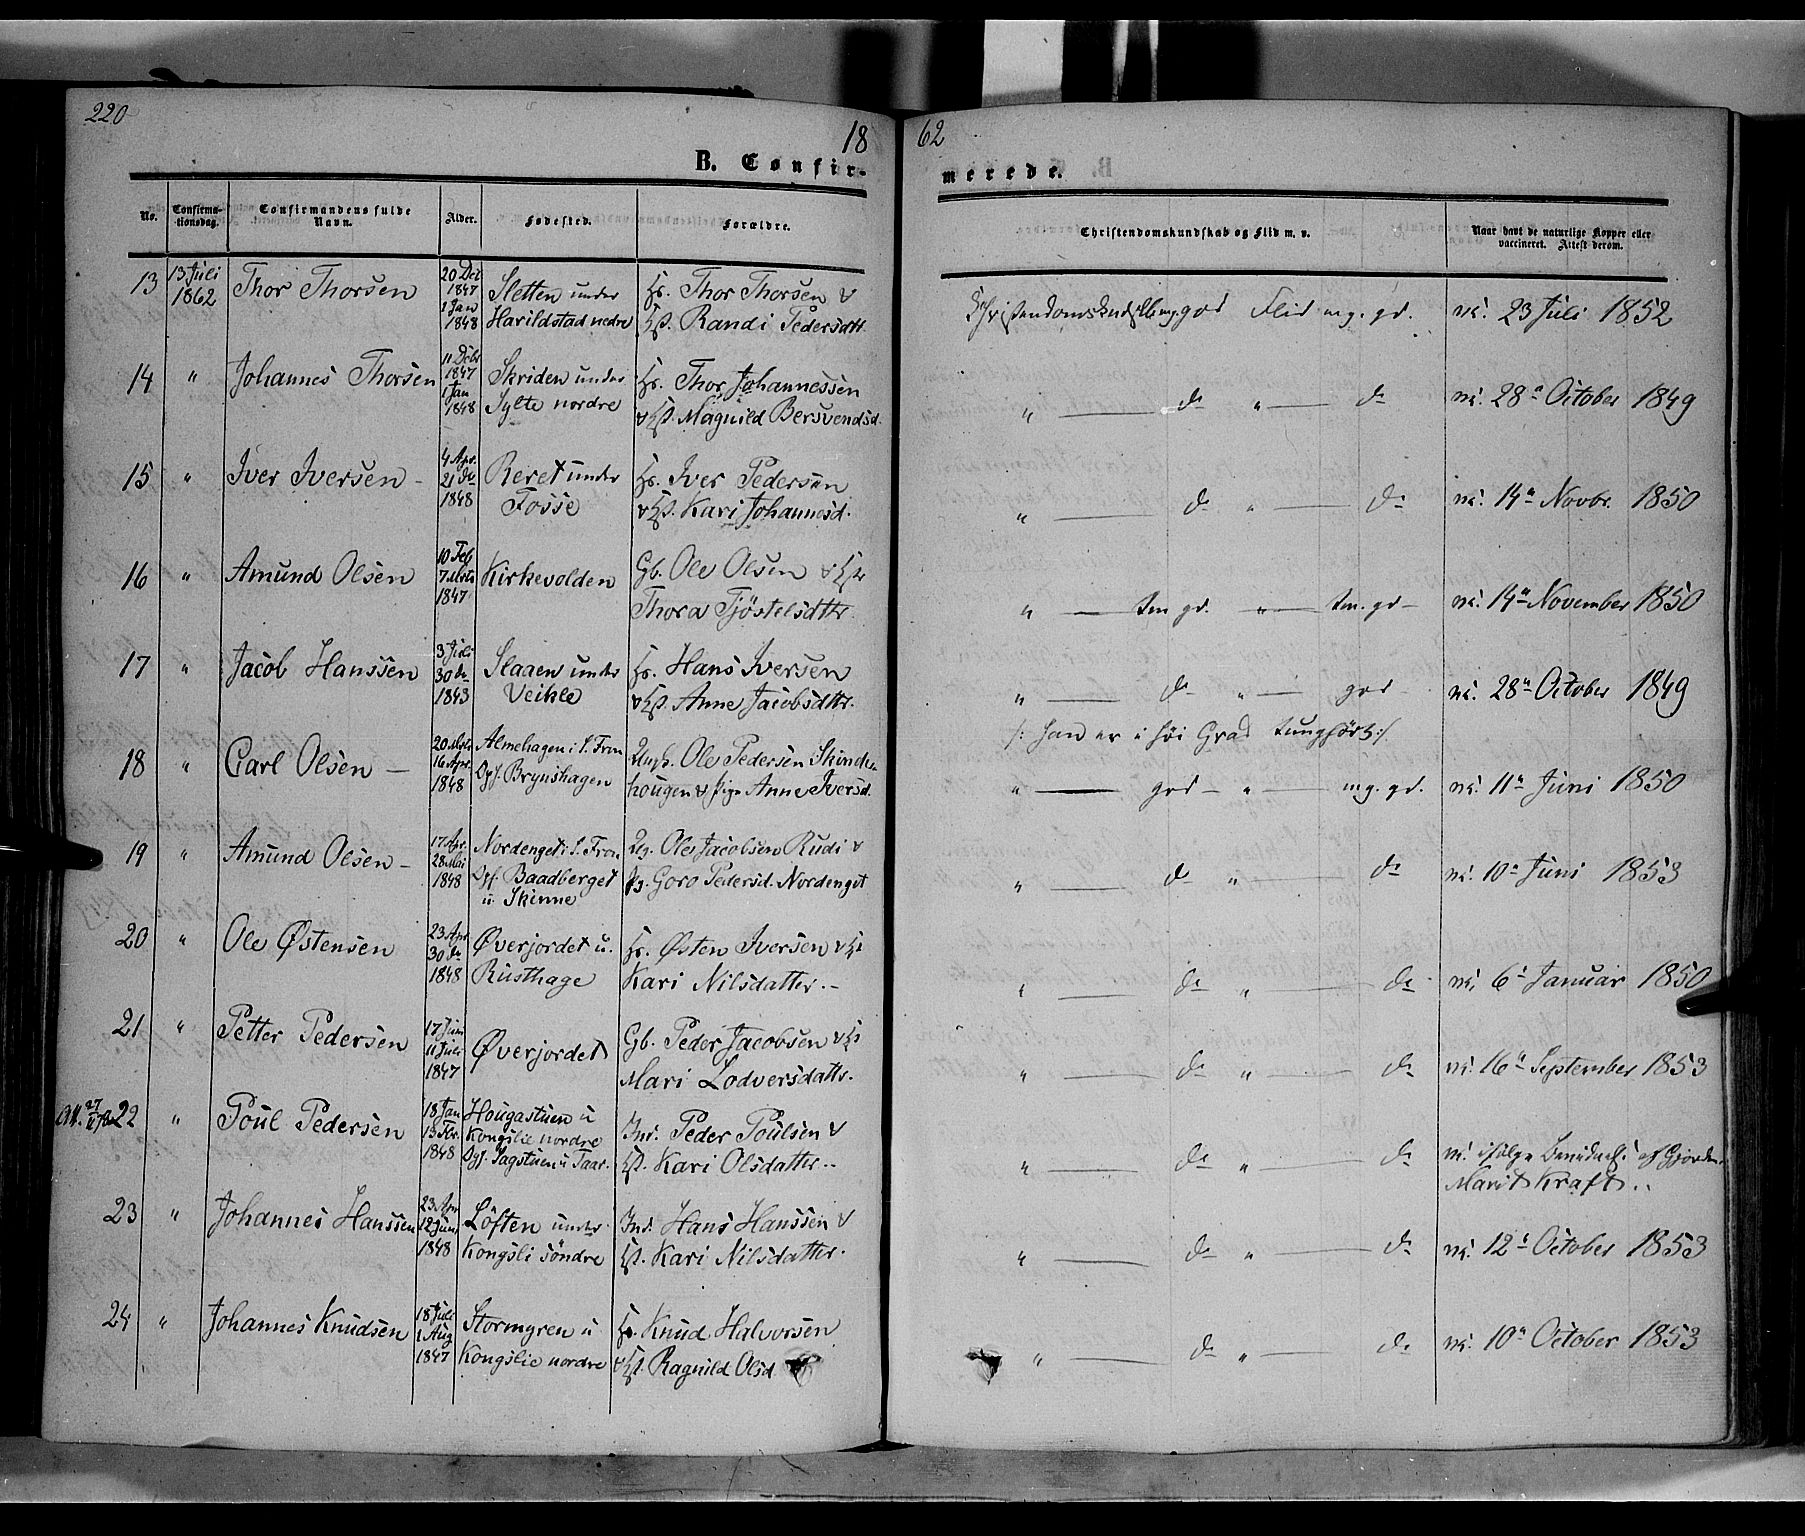 220
18
62
B. Confir-
merede.
No.
Confirma-
tionsdag.
Confirmandens fulde
Navn.
Alder.
Fødested.
Forældre.
Christendomskundskab og Flid m. v.
Naar havt de naturlige Kopper eller
vaccineret. Attest derom.
13 13 Juli 1862 Thor Thorsen 20 Dec 1847 1 Jan 1848 Sletten under Harildstad nedre Hs. Thor Thorsen & Hst. Randi Pedersdtr. Christendomskundsk. mg. god Flid mg. gd. vc. 23 Juli 1852
14 " Johannes Thorsen 11 Decbr 1847 1 Jan 1848 Skriden under Sylte nordre Hs. Thor Johannessen & Hst. Magnild Bersvendsd. " — do " — do vc. 28 October 1849
15 " Iver Iversen - 4 Apr. 21 do 1848 Reret under Fosse Hs. Iver Pedersen & Hst. Kari Johannesd. " — do " — do vc. 14 Novbr. 1850
16 " Amund Olsen 10 Feb 7 Mrts 1847 Kirkevolden Gb. Ole Olsen & Hst Thora Tjöstelsdtr. " — tm gd. " — tm. gd - vc. 14 November 1850
17 " Jacob Hanssen 3 Juli 30 do 1843 Slaaen under Veikle Hs. Hans Iversen & Hst. Anne Jacobsdtr. " — do " — god - vc. 28 October 1849
/: Han er i höi Grad tunghört :/
18 " Carl Olsen — 20 Mrts 16 Apr. 1848 Almehagen i S. Fron Dgf. Brynshagen Ungk. Ole Pedersen Skinde- hougen & Pige Anne Iversd. " — god - " — mg. gd. vc. 11 Juni 1850
19 " Amund Olsen - 17 Apr. 28 Mai 1848 Nordenget i S. Fron Dgf. Baadberget u. Skinne Ug. Ole Jacobsen Rudi & Pg. Goro Pedersd. Nordenget " — do " — do vc. 10 Juni 1853
20 " Ole Østensen 23 Apr 30 do 1848 Øverjordet u. Rusthage Hs. Østen Iversen & Hst Kari Nilsdatter. - " — do " — do vc. 6 Januar 1850
21 " Petter Pedersen 17 Juni 11 Juli 1847 Øverjordet Gb. Peder Jacobsen & Hst Mari Lodversdattr. " — do " — do vc. 16 September 1853
22 " Poul Pedersen 18 Jan 13 Fbr. 1848 Hougastuen u Kongslie nordre Dgf. Sagstuen u Taar. Ind. Peder Poulsen & Hst. Kari Olsdatter.. " — do " — do vc. ifölge af Gjordm. Marit Kraft..
23 " Johannes Hanssen 23 Apr 12 Juni 1848 Löften under Kongsli söndre Ind. Hans Hanssen & Hst. Kari Nilsdatter. " — do " — do vc. 12 October 1853
24 " Johannes Knudsen 18 Juli 1 Aug 1847 Stormyren u Kongslie nordre Hs. Knud Halvorsen & Hst. Ragnild Olsd " — do " — do vc. 10 October 1853